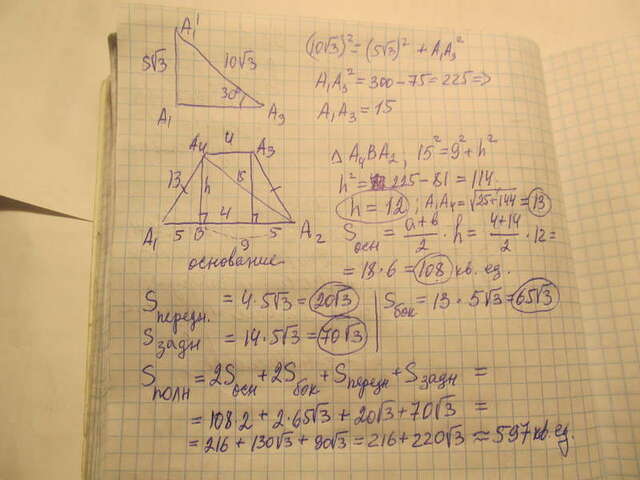 A₁¹
5√3
10√3
30°
A₁
A₃
(10√3)² = (5√3)² + A₁A₃²
A₁A₃² = 300 - 75 = 225 =>
A₁A₃ = 15
4
A₄
A₃
13
h
15
4
A₁
5
B
9
5
A₂
основание
Δ A₄BA₂, 15² = 9² + h²
h² = 225 - 81 = 114.
h = 12; A₁A₄ = √25+144 = 13
Sосн = a+b/2 · h = 4+14/2 · 12 =
= 18 · 6 = 108 кв. ед.
Sпередн. = 4 · 5√3 = 20√3
Sбок = 13 · 5√3 = 65√3
Sзадн = 14 · 5√3 = 70√3
Sполн = 2Sосн + 2Sбок + Sпередн + Sзадн =
= 108 · 2 + 2 · 65√3 + 20√3 + 70√3 =
= 216 + 130√3 + 90√3 = 216 + 220√3 ≈ 597 кв. ед.